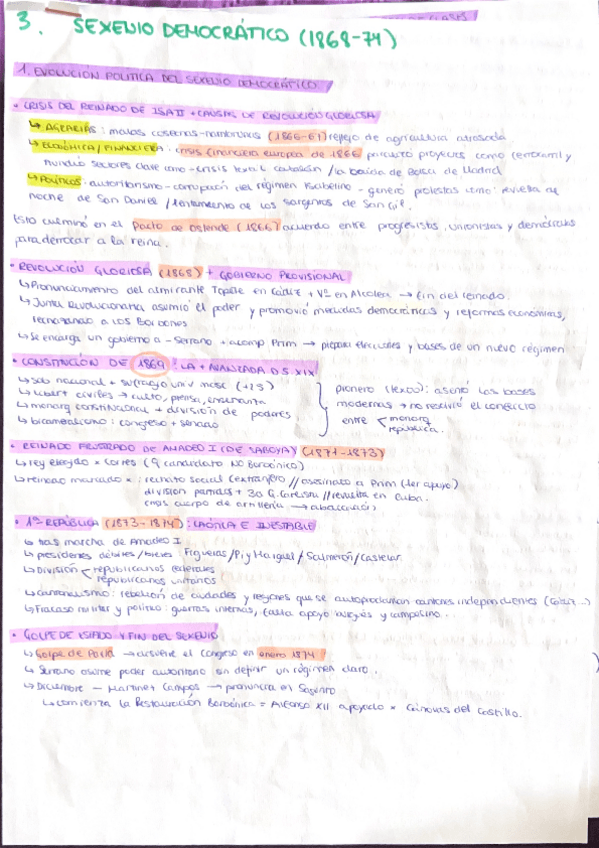 3. SEXENIO DEMOCRÁTICO (1868-74)
1. EVOLUCIÓN POLITICA DEL SEXENIO DEMOCRÁTICO
• CRISIS DEL REINADO DE ISA II + CAUSAS DE REVOLUCIÓN GLORIOSA
↳ AGRARIAS: malas cosechas-hambrunas (1866-67) reflejo de agricultura atrasada
↳ ECONÓMICA / FINANCIERA: crisis financiera europea de 1866 paralizó proyectos como ferrocarril y
hundió sectores clave como - crisis textil catalán / la caída de Bolsa de Madrid
↳ POLÍTICAS: autoritarismo - corrupción del régimen Isabelino - generó protestas como: revuelta de
noche de San Daniel / levantamiento de los sargentos de San Gil.
Esto culminó en el Pacto de Ostende (1866) acuerdo entre progresistas, unionistas y demócratas
para derrocar a la reina.
• REVOLUCIÓN GLORIOSA (1868) + GOBIERNO PROVISIONAL
↳ Pronunciamiento del almirante Topete en Cádiz + Vª en Alcolea → fin del reinado.
↳ Junta Revolucionaria asumió el poder y promovió medidas democráticas y reformas económicas,
rechazando a los Borbones
↳ Se encarga un gobierno a - Serrano + acomp Prim → preparar elecciones y bases de un nuevo régimen
• CONSTITUCIÓN DE 1869: LA + AVANZADA D S. XIX
↳ sob nacional + sufragio univ masc (+25)
↳ libert civiles → culto, prensa, enseñanza
↳ monarq constitucional + división de poderes
↳ bicameralismo: congreso + senado
pionero (texto): asentó las bases
modernas → no resolvió el conflicto
entre monarq
república.
• REINADO FRUSTRADO DE AMADEO I (DE SABOYA) (1871-1873)
↳ rey elegido x Cortes (q candidato NO Borbónico)
↳ reinado marcado x: rechazo social (extranjero) // asesinato a Prim (1er apoyo)
división partidos + 3a G. Carlista // revuelta en Cuba.
crisis cuerpo de artillería → abdicación
• 1ª REPÚBLICA (1873-1874): CAÓTICA E INESTABLE
↳ tras marcha de Amadeo I
↳ presidentes débiles / breves: Figueras / Pi y Margall / Salmerón / Castelar
↳ División republicanos federales
republicanos unitarios
↳ Cantonalismo: rebelión de ciudades y regiones que se autoproclaman cantones independientes (Cádiz...)
↳ Fracaso militar y político: guerras internas, falta apoyo burgués y campesino.
• GOLPE DE ESTADO Y FIN DEL SEXENIO
↳ Golpe de Pavía → disuelve el Congreso en enero 1874
↳ Serrano asume poder autoritario sin definir un régimen claro.
↳ Diciembre - Martínez Campos → pronuncia en Sagunto
↳ comienza la Restauración Borbónica = Alfonso XII apoyado x Cánovas del Castillo.